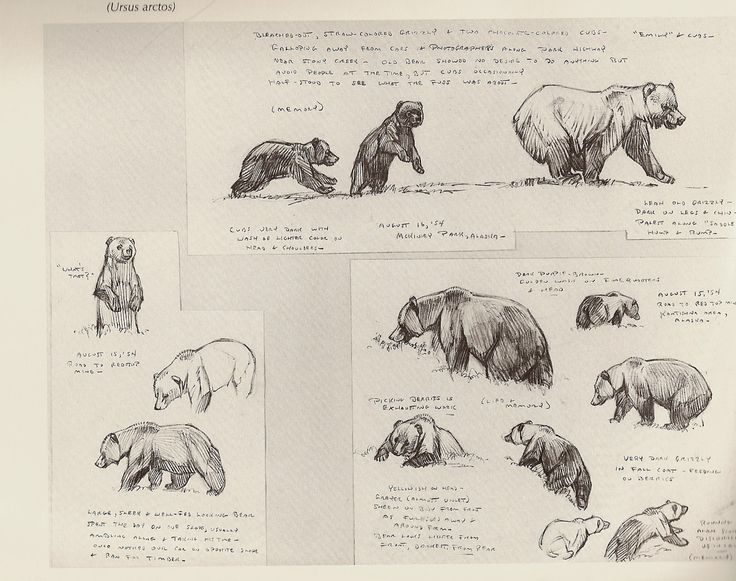 (Ursus arctos)
BLEACHED-OUT, STRAW-COLORED GRIZZLY & TWO CHOCOLATE-COLORED CUBS-
GALLOPING AWAY FROM CARS & PHOTOGRAPHERS ALONG PARK HIGHWAY
NEAR STONY CREEK - OLD BEAR SHOWED NO DESIRE TO DO ANYTHING BUT
AVOID PEOPLE AT THE TIME, BUT CUBS OCCASIONALLY
HALF-STOOD TO SEE WHAT THE FUSS WAS ABOUT-
"EMILY" & CUBS-
(MEMORY)
CUBS VERY DARK WITH
WASH OF LIGHTER COLOR ON
HEAD & SHOULDERS-
AUGUST 16, '54
MCKINLEY PARK, ALASKA-
LEAN OLD GRIZZLY-
DARK ON LEGS & CHIN-
PALEST ALONG "SADDLE
HUMP & RUMP-
"WHAT'S
THAT?"
AUGUST 15, '54
ROAD TO REDTOP
MINE-
LARGE, SLEEK & WELL-FED LOOKING BEAR
SPENT THE DAY ON ONE SLOPE, USUALLY
AMBLING ALONG & TAKING HIS TIME-
ONCE NOTICED OUR CAR ON OPPOSITE SLOPE
& RAN FOR TIMBER-
DARK PURPLE-BROWN-
GOLDEN WASH ON FOREQUARTERS
& HEAD
AUGUST 15, '54
ROAD TO RED TOP MINE
KANTISHNA AREA,
ALASKA-
PICKING BERRIES IS
EXHAUSTING WORK
(LIFE &
MEMORY)
YELLOWISH ON HEAD-
GRAYER (ALMOST VIOLET)
SHEEN ON BODY FROM FRONT
AS FUR RIDGES AWAY &
AROUND FORM-
BEAR LOOKS LIGHTER FROM
FRONT, DARKEST FROM REAR
VERY DARK GRIZZLY
IN FALL COAT - FEEDING
ON BERRIES
RUNNING
(MEMORY)